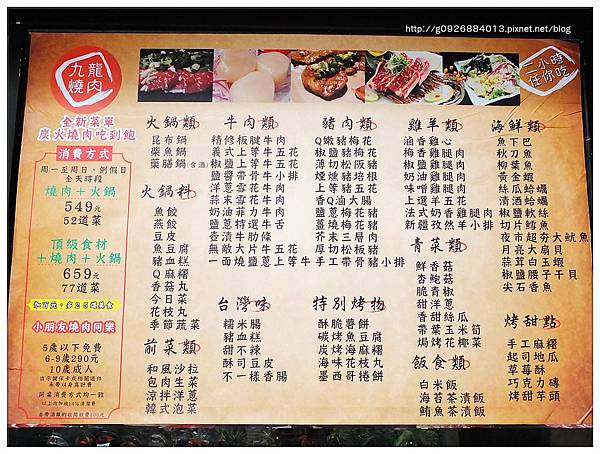 http://g0926884013.pixnet.net/blog
九龍
燒肉
二小時
任你吃
全新菜單
炭火燒肉吃到飽
消費方式
周一至周日、例假日
全天時段
燒肉+火鍋
549元
52道菜
頂級食材
+燒肉+火鍋
659元
77道菜
加百元，多25道美食
小朋友燒肉同樂
5歲以下免費
6-9歲290元
10歲成人
同桌消費方式均一致
以上均加收10%清潔費
火鍋類
昆布鍋
柴魚鍋
藥膳鍋(含酒)
火鍋料
魚餃
燕餃
豆皮
魚豆腐
豬血糕
Q麻糬
香菇丸
今日菜
花枝丸
季節蔬菜
前菜類
和風沙拉
包肉生菜
涼拌洋蔥
韓式泡菜
牛肉類
精修板腱牛肉
義式上等牛五花
椒鹽上等牛五花
鹽醬帶骨牛小排
洋蔥雪花牛肉
蒜末雪花牛肉
奶油菲力牛肉
鹽蔥特選牛舌
壺漬牛肋條
無敵大片牛五花
一面燒鹽蔥上等牛
台灣味
糯米腸
豬血糕
甜不辣
酥司豆皮
不一樣香腸
豬肉類
Q嫩豬梅花
椒鹽豬梅花
薄切松阪豬
煙燻豬培根
上等豬五花
香Q滷大腸
蔥燒梅花豬
椒鹽梅花豬
芥末三層肉
厚切松板豬
手工帶骨豬小排
特別烤物
酥脆薯餅
碳烤魚豆腐
炭烤海麻糬
海味花枝丸
墨西哥捲餅
雞羊類
油香雞心
梅香雞腿肉
椒香雞腿肉
奶香雞腿肉
味噌雞腿肉
上選羊五花
法式奶香雞腿肉
新疆孜然羊小排
青菜類
鮮香菇
杏鮑菇
脆青椒
甜洋蔥
香甜絲瓜
帶葉玉米筍
焗烤花椰菜
飯食類
白米飯
海苔茶漬飯
鮪魚茶漬飯
海鮮類
魚下巴
秋刀魚
柳葉魚
鹽蜆
絲瓜蛤蠣
清酒蛤蠣
椒鹽軟絲
切片鱈魚
夜市超夯大魷魚
月亮大扇貝
蒜茸白玉蝦
椒鹽腰子干貝
尖石香魚
烤甜點
手工麻糬
起司地瓜
草莓酥
巧克力磚
烤甜芋頭